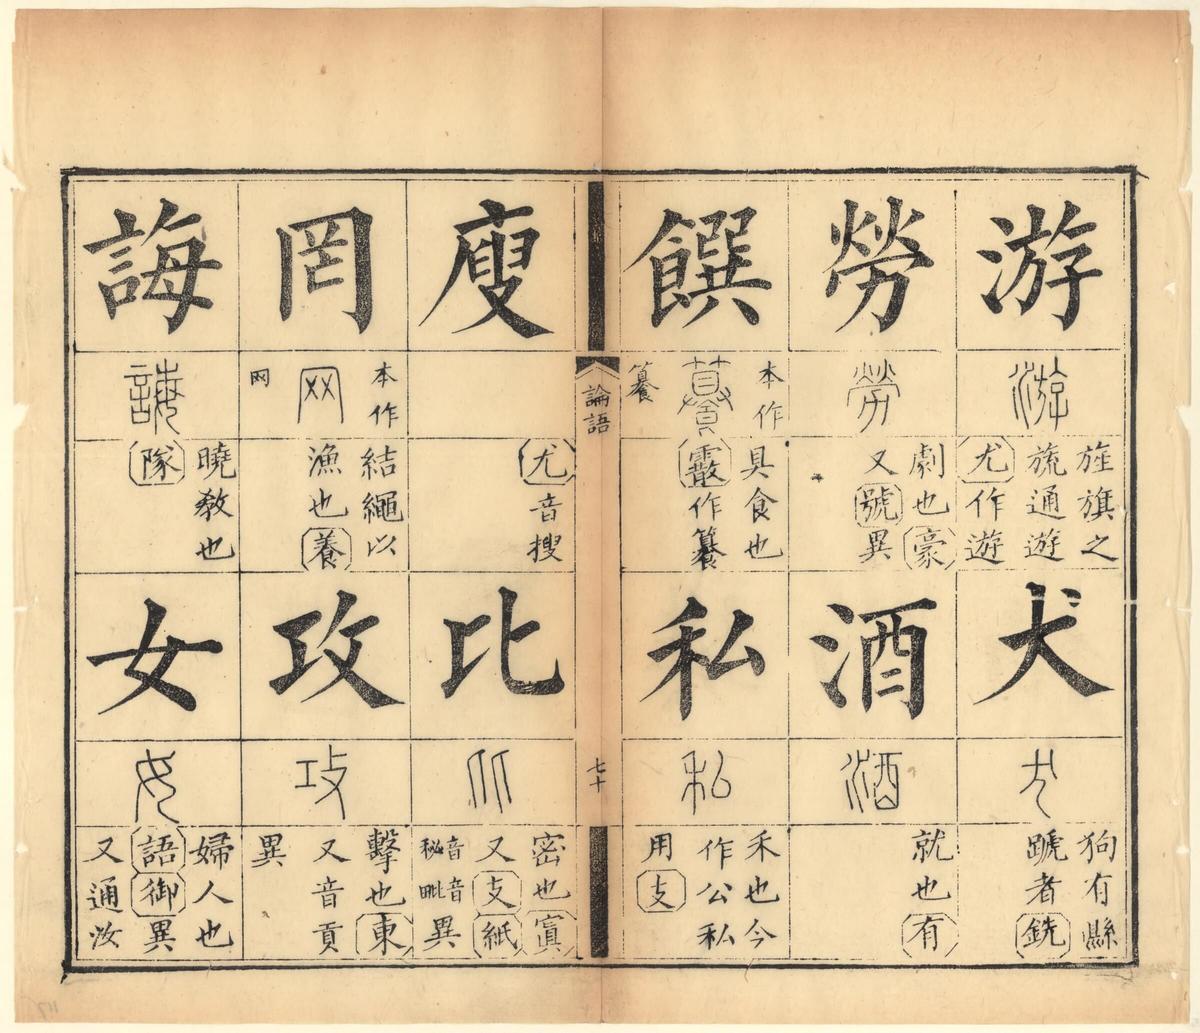 游
游
旌旗之
旒通遊
尤作遊
犬
犬
狗有縣
蹏者銑
勞
勞
劇也豪
又號異
酒
酒
就也有
饌
本作
籑
具食也
霰作籑
私
私
禾也今
作公私
用支
論語
七十
廋
尤音搜
比
比
密也寘
又支紙
音秘音毗異
罔
本作
网
网
結繩以
漁也養
攻
攻
擊也東
又音貢
異
誨
誨
曉教也
隊
女
女
婦人也
語御異
又通汝